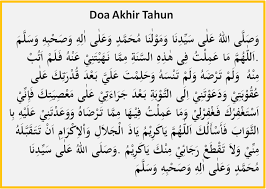 Doa Akhir Tahun
وَصَلَّى اللهُ عَلَى سَيِّدِنَا وَمَوْلَنَا مُحَمَّدٍ وَعَلَى اٰلِهِ وَصَحْبِهِ وَسَلَّمَ
.اَللّٰهُمَّ مَا عَمِلْتُ فِى هٰذِهِ السَّنَةِ مِمَّا نَهَيْتَنِيْ عَنْهُ فَلَمْ اَتُبْ
مِنْهُ وَلَمْ تَرْضَهُ وَلَمْ تَنْسَهُ وَحَلِمْتَ عَلَيَّ بَعْدَ قُدْرَتِكَ عَلَى
عُقُوْبَتِيْ وَدَعَوْتَنِيْ اِلَى التَّوْبَةِ بَعْدَ جَرَاءَتِيْ عَلَى مَعْصِيَتِكَ فَاِنِّيْ
اسْتَغْفَرْكَ فَغْفِرْلِيْ وَمَا عَمِلْتُ فِيْهَا مِمَّا تَرْضَاهُ وَوَعَدْتَنِيْ عَلَيْهِ بِا
الثَّوَابِ فَاَسْأَلُكَ اللّٰهُمَّ يَاكَرِيْمُ يَاذَ الْجَلَالِ وَاْلاِكْرَامِ اَنْ تَتَقَبَّلَهُ
مِنِّيْ وَلاَ تَقْطَعْ رَجَائِيْ مِنْكَ يَاكَرِيْمُ .وَصَلَّى اللهُ عَلَى سَيِّدِنَا
مُحَمَّدٍ وَعَلَى اٰلِهِ وَصَحْبِهِ وَسَلَّمَ